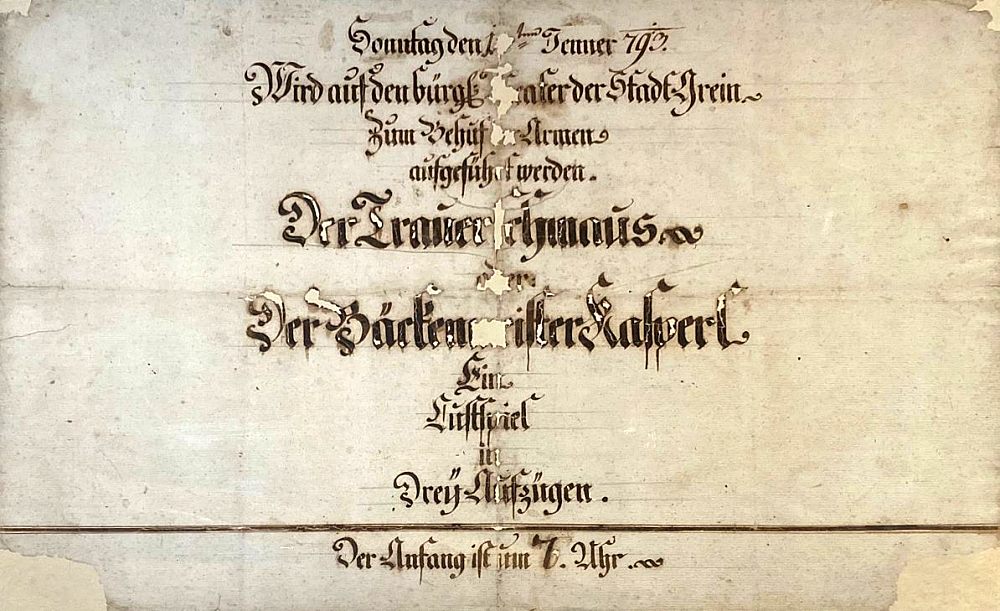 Sonntag den ten Jenner 793.
Wird auf den bürgl. Theater der Stadt Grein
Zum Behuf der Armen
aufgeführt werden.
Der Trauerschmaus
oder
Der Bäckenmeister Kasperl
Ein
Lustspiel
in
Dreÿ Aufzügen.
Der Anfang ist um 7. Uhr.